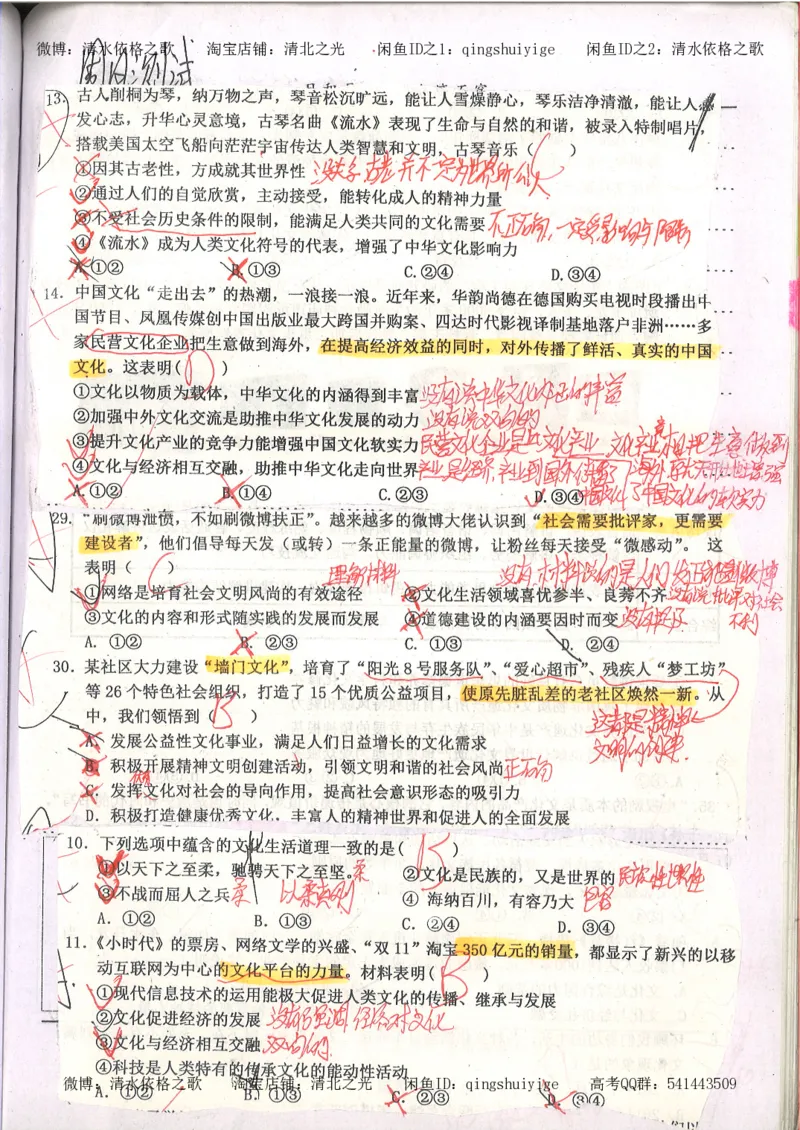 微博：清水依格之歌 淘宝店铺：清北之光 闲鱼ID之1：qingshuiyige 闲鱼ID之2：清水依格之歌
13. 古人削桐为琴，纳万物之声，琴音松沉旷远，能让人雪燥静心，琴乐洁净清澈，能让人
发心志，升华心灵意境，古琴名曲《流水》表现了生命与自然的和谐，被录入特制唱片，
搭载美国太空飞船向茫茫宇宙传达人类智慧和文明，古琴音乐（ C ）
①因其古老性，方成就其世界性
②通过人们的自觉欣赏，主动接受，能转化成人的精神力量
③不受社会历史条件的限制，能满足人类共同的文化需要 不正确，一定受影响与限制
④《流水》成为人类文化符号的代表，增强了中华文化影响力
A.①② B.①③ C.②④ D.③④
14. 中国文化“走出去”的热潮，一浪接一浪。近年来，华韵尚德在德国购买电视时段播出中
国节目、凤凰传媒创中国出版业最大跨国并购案、四达时代影视译制基地落户非洲……多
家民营文化企业把生意做到海外，在提高经济效益的同时，对外传播了鲜活、真实的中国
文化。这表明( D )
①文化以物质为载体，中华文化的内涵得到丰富 没有说中华文化内涵的丰富
②加强中外文化交流是助推中华文化发展的动力 没有说双向的
③提升文化产业的竞争力能增强中国文化软实力
④文化与经济相互交融，助推中华文化走向世界
A.①② B.①④ C.②③ D.③④
29. “刷微博泄愤，不如刷微博扶正”。越来越多的微博大佬认识到“社会需要批评家，更需要
建设者”，他们倡导每天发（或转）一条正能量的微博，让粉丝每天接受“微感动”。 这
表明（ C ） 理解材料
①网络是培育社会文明风尚的有效途径 ②文化生活领域喜优参半、良莠不齐
③文化的内容和形式随实践的发展而发展 ④道德建设的内涵要因时而变 没有提及
A. ①② B. ②③ C. ①③ D. ②④
30. 某社区大力建设“墙门文化”，培育了“阳光8号服务队”、“爱心超市”、残疾人“梦工坊”
等26个特色社会组织，打造了15个优质公益项目，使原先脏乱差的老社区焕然一新。从
中，我们领悟到( B )
A. 发展公益性文化事业，满足人们日益增长的文化需求
B. 积极开展精神文明创建活动，引领文明和谐的社会风尚 正确
C. 发挥文化对社会的导向作用，提高社会意识形态的吸引力
D. 积极打造健康优秀文化，丰富人的精神世界和促进人的全面发展
10. 下列选项中蕴含的文化生活道理一致的是( B )
①以天下之至柔，驰骋天下之至坚。柔 ②文化是民族的，又是世界的 民族性世界性
③不战而屈人之兵 柔 以柔克刚 ④ 海纳百川，有容乃大 包容
A. ①② B. ①③ C. ②④ D. ③④
11.《小时代》的票房、网络文学的兴盛、“双11”淘宝350亿元的销量，都显示了新兴的以移
动互联网为中心的文化平台的力量。材料表明( B )
①现代信息技术的运用能极大促进人类文化的传播、继承与发展
②文化促进经济的发展 没有强调 经济对文化
③文化与经济相互交融 双向的
④科技是人类特有的传承文化的能动性活动
微博：清水依格之歌 淘宝店铺：清北之光 闲鱼ID：qingshuiyige 高考QQ群：541443509
A. ①② B. ①③ C. ②③ D. ③④